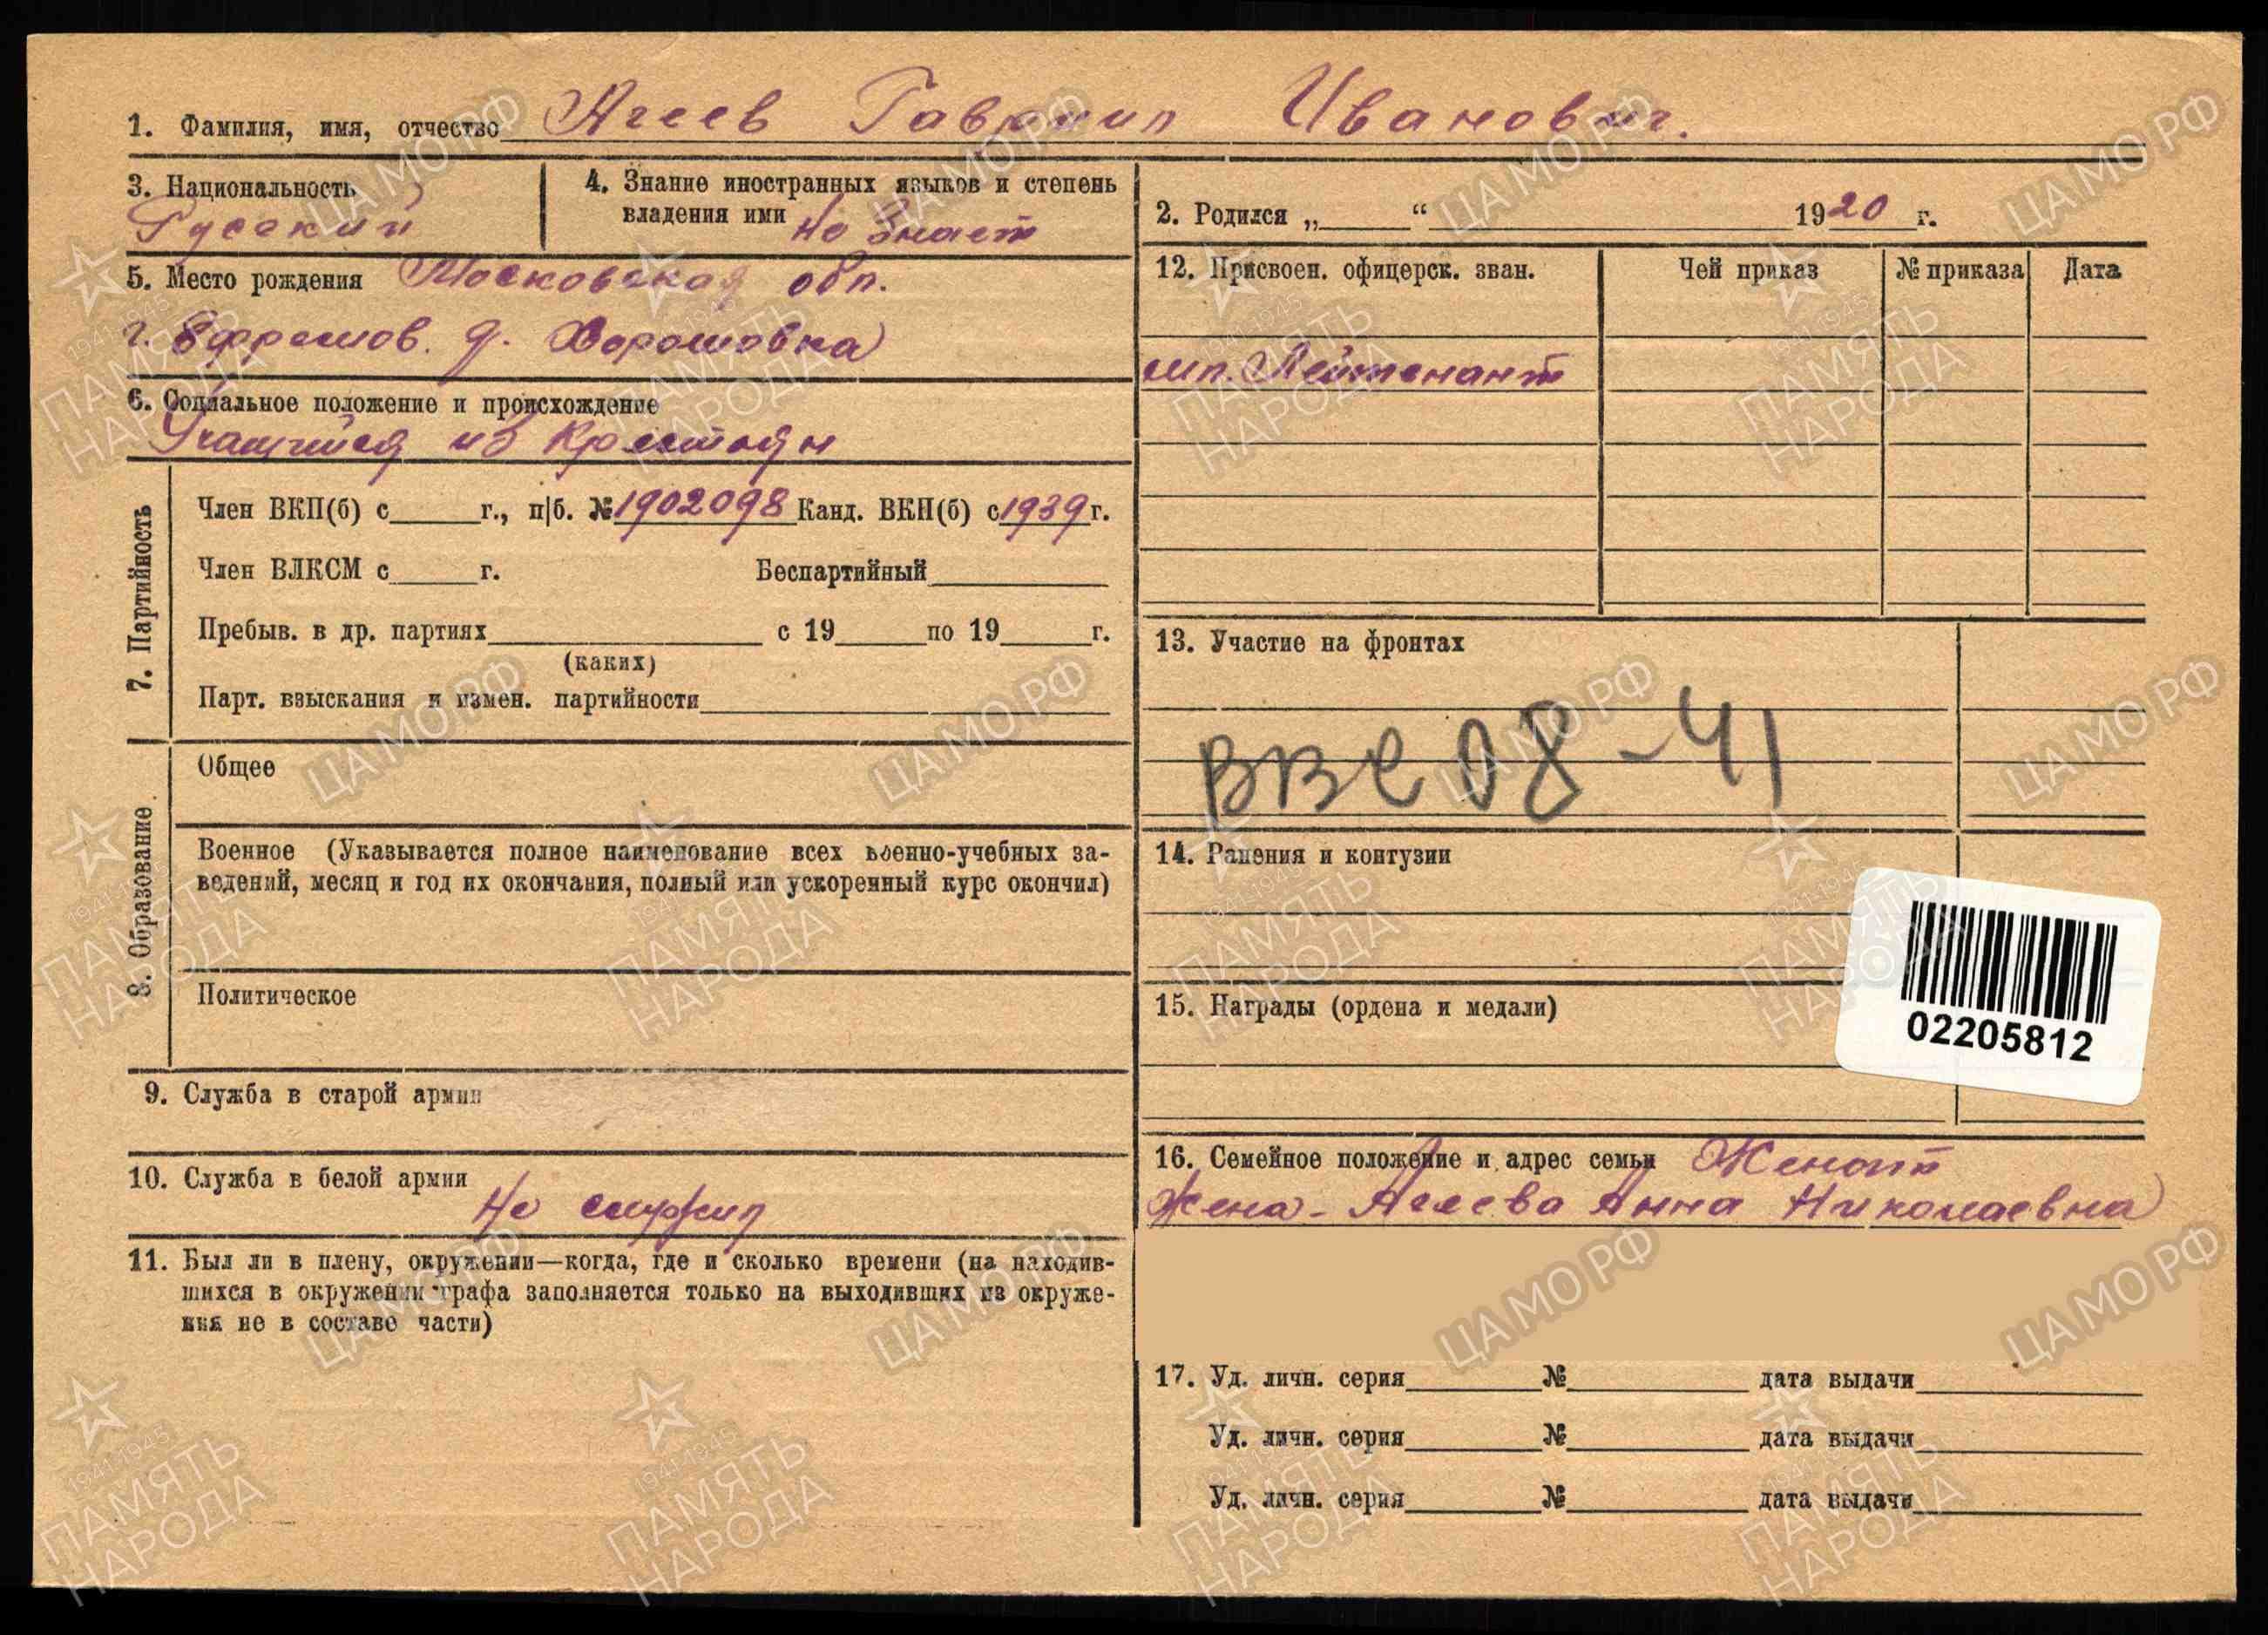 1. Фамилия, имя, отчество Агеев Гавриил Иванович.
3. Национальность Русский
4. Знание иностранных языков и степень
владения ими Не знает
2. Родился „ “ 1920 г.
5. Место рождения Московская обл.
г. Ефремов. д. Хорошовка
6. Социальное положение и происхождение
Учащийся из крестьян
7. Партийность
Член ВКП(б) с г., п|б. № 1902098 Канд. ВКП(б) с 1939 г.
Член ВЛКСМ с г. Беспартийный
Пребыв. в др. партиях с 19 по 19 г.
(каких)
Парт. взыскания и измен. партийности
8. Образование
Общее
Военное (Указывается полное наименование всех военно-учебных за-
ведений, месяц и год их окончания, полный или ускоренный курс окончил)
Политическое
9. Служба в старой армии
10. Служба в белой армии
Не служил
11. Был ли в плену, окружении—когда, где и сколько времени (на находив-
шихся в окружении графа заполняется только на выходивших из окруже-
ния не в составе части)
12. Присвоен. офицерск. зван. Чей приказ № приказа Дата
мл. Лейтенант
13. Участие на фронтах
08-41
14. Ранения и контузии
15. Награды (ордена и медали)
02205812
16. Семейное положение и адрес семьи Женат
Жена - Агеева Анна Николаевна
17. Уд. личн. серия № дата выдачи
Уд. личн. серия № дата выдачи
Уд. личн. серия № дата выдачи
ЦАМО.РФ
1941-1945
ПАМЯТЬ
НАРОДА